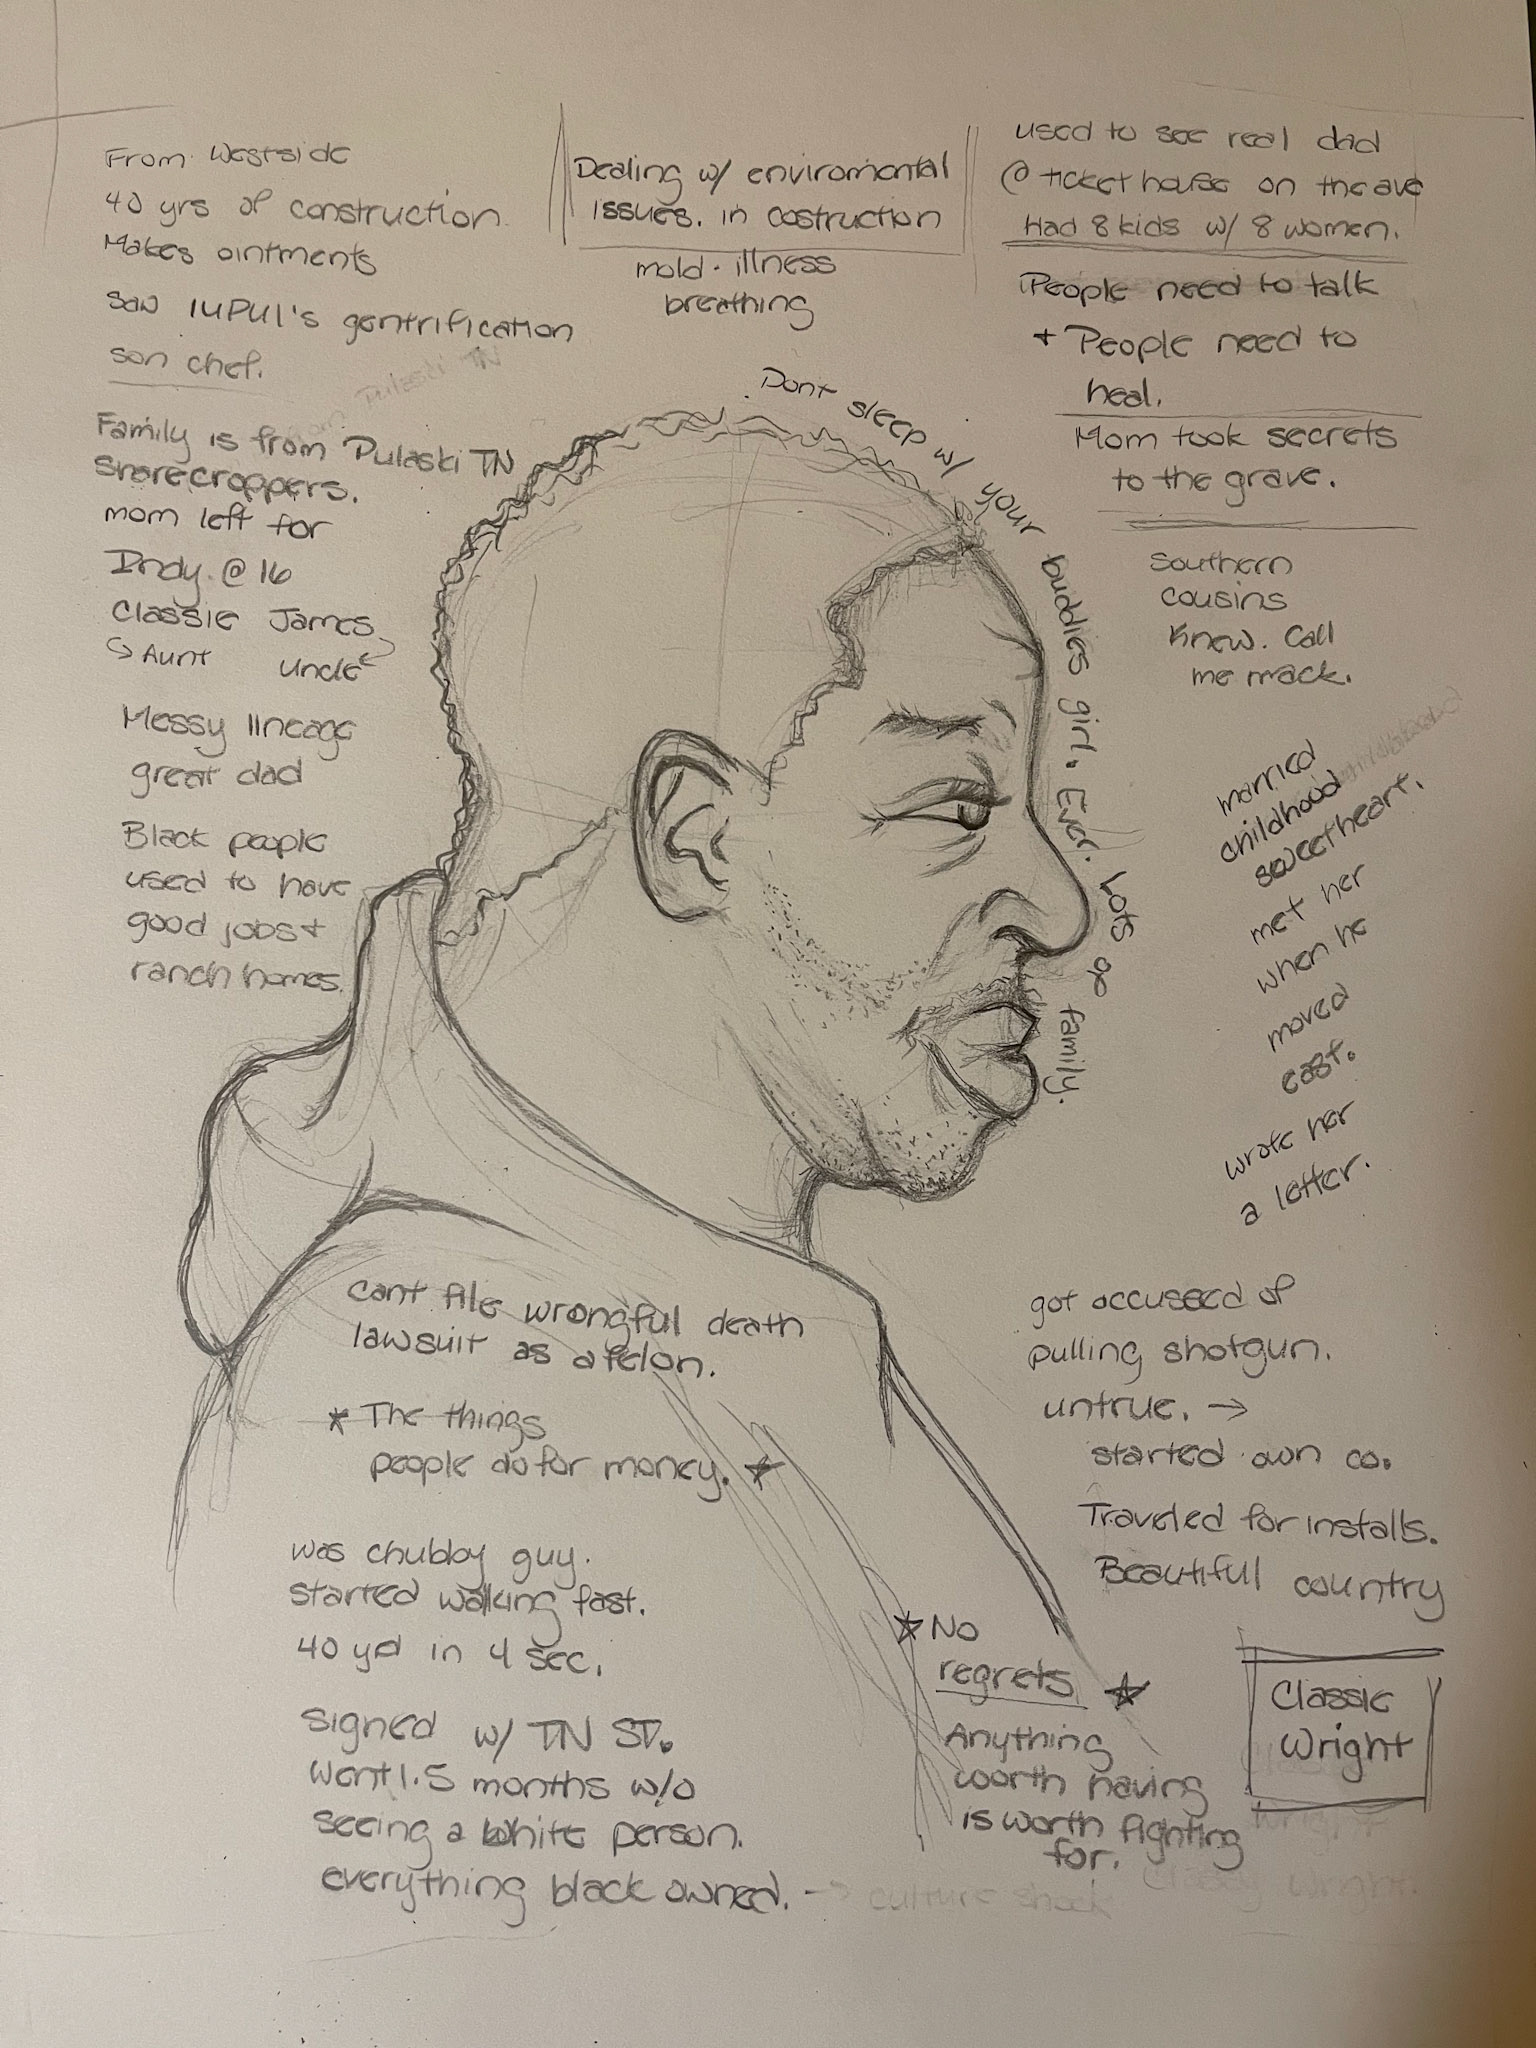 From Westside
40 yrs of construction.
Makes ointments
saw IUPUI's gentrification
son chef.
Pulaski TN
Family is from Pulaski TN
sharecroppers.
mom left for
Indy @ 16
Classie James
Aunt uncle
Messy lineage
great dad
Black people
used to have
good jobs +
ranch homes.
Dealing w/ enviromental
issues. in costruction
mold. illness
breathing
used to see real dad
@ ticket house on the ave
Had 8 kids w/ 8 women.
People need to talk
+ People need to
heal.
Mom took secrets
to the grave.
Southern
cousins
knew. Call
me mack.
Dont sleep w/ your buddies girl. Ever. Lots go family.
childhood
married
childhood
sweetheart.
met her
when he
moved
east.
wrote her
a letter.
cant file wrongful death
lawsuit as a felon.
* The things
people do for money. *
was chubby guy.
started walking fast.
40 yd in 4 sec.
signed w/ TN ST.
Went 1.5 months w/o
seeing a white person.
everything black owned. → culture shock
got accuseed of
pulling shotgun.
untrue. →
started own co.
Traveled for installs.
Beautiful country
* No
regrets *
Anything
worth having
is worth fighting
for.
Classie
Wright
Wright
Classy Wright.